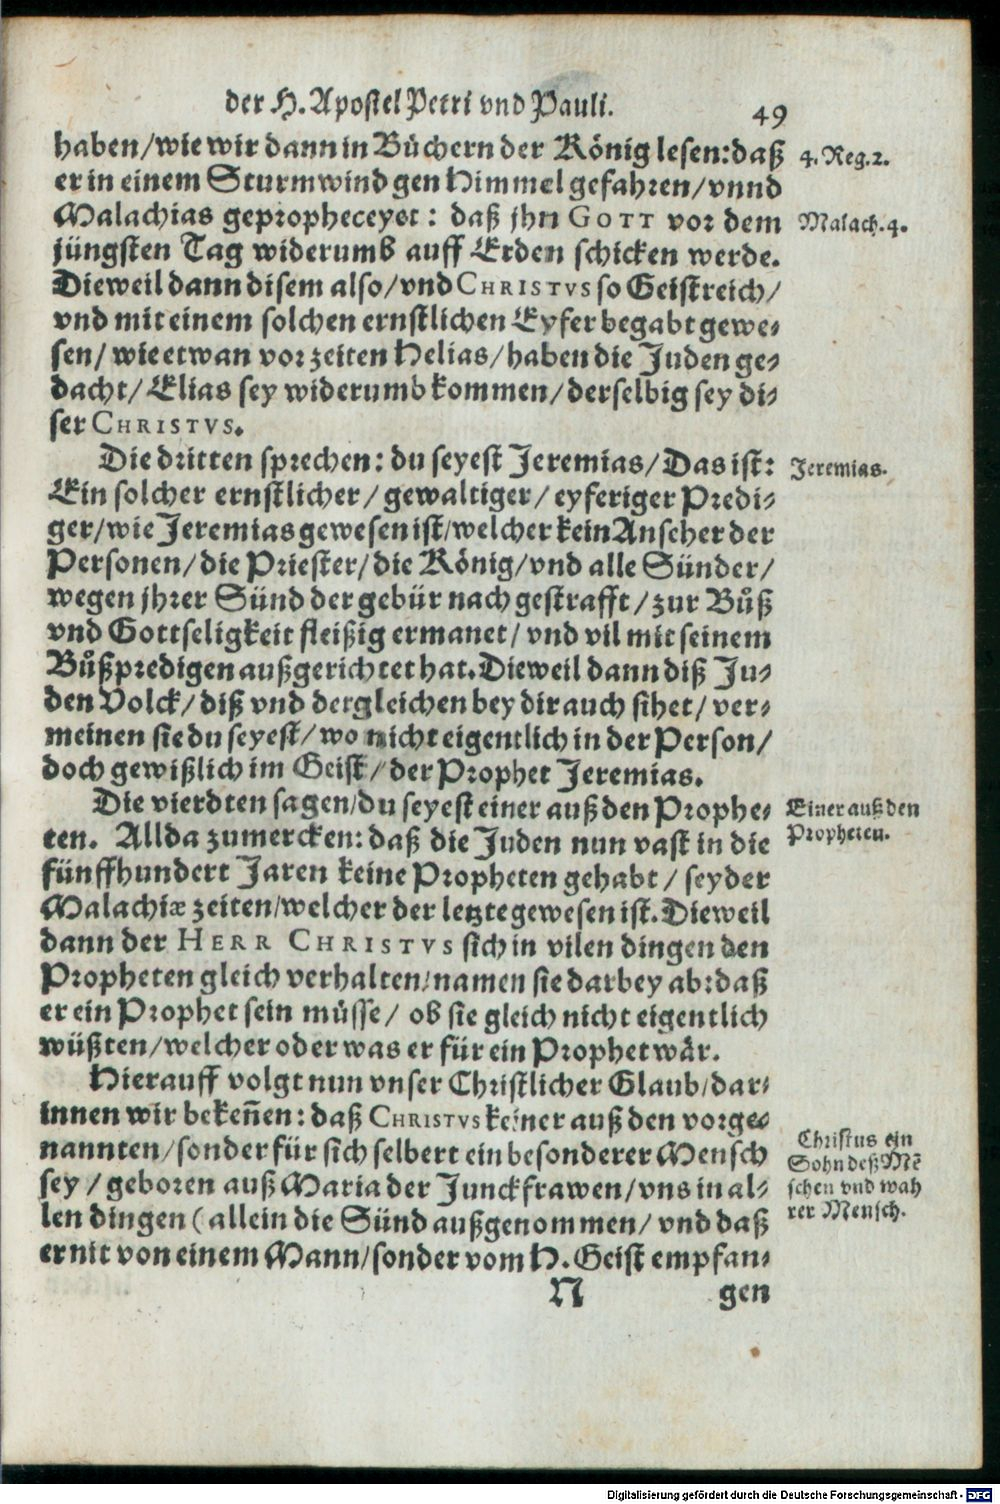 der H. Apostel Petri vnd Pauli.
49
haben/wie wir dann in Büchern der König lesen:daß
4. Reg. 2.
er in einem Sturmwind gen Himmel gefahren/vnnd
Malachias gepropheceyet: daß jhn GOTT vor dem
Malach. 4.
jüngsten Tag widerumb auff Erden schicken werde.
Dieweil dann disem also/vnd CHRISTVS so Geistreich/
vnd mit einem solchen ernstlichen Eyfer begabt gewe-
sen/ wie etwan vor zeiten Helias/haben die Juden ge-
dacht/ Elias sey widerumb kommen/derselbig sey di-
ser CHRISTVS.
Die dritten sprechen: du seyest Jeremias/Das ist:
Jeremias.
Ein solcher ernstlicher/ gewaltiger/ eyferiger Predi-
ger/wie Jeremias gewesen ist/welcher kein Anseher der
Personen/die Priester/die König/vnd alle Sünder/
wegen jhrer Sünd der gebür nach gestrafft/zur Bůß
vnd Gottseligkeit fleißig ermanet/ vnd vil mit seinem
Bůßpredigen außgerichtet hat. Dieweil dann diß Ju-
den Volck/ diß vnd dergleichen bey dir auch sihet/ ver-
meinen sie du seyest/ wo nicht eigentlich in der Person/
doch gewißlich im Geist/ der Prophet Jeremias.
Die vierdten sagen/du seyest einer auß den Prophe-
Einer auß den
ten. Allda zumercken: daß die Juden nun vast in die
Propheten.
fünffhundert Jaren keine Propheten gehabt/ seyder
Malachiæ zeiten/welcher der letzte gewesen ist. Dieweil
dann der HERR CHRISTVS sich in vilen dingen den
Propheten gleich verhalten/namen sie darbey ab:daß
er ein Prophet sein müsse/ ob sie gleich nicht eigentlich
wüßten/welcher oder was er für ein Prophet wär.
Hierauff volgt nun vnser Christlicher Glaub/dar-
innen wir bekeñen: daß CHRISTVS keiner auß den vorge-
nannten/sonder für sich selbert ein besonderer Mensch
Christus ein
Sohn deß Mẽ
sey/ geboren auß Maria der Junckfrawen/vns in al-
schen vnd wah
len dingen (allein die Sünd außgenommen/ vnd daß
rer Mensch.
er nit von einem Mann/sonder vom H. Geist empfan-
N
gen
Digitalisierung gefördert durch die Deutsche Forschungsgemeinschaft - DFG